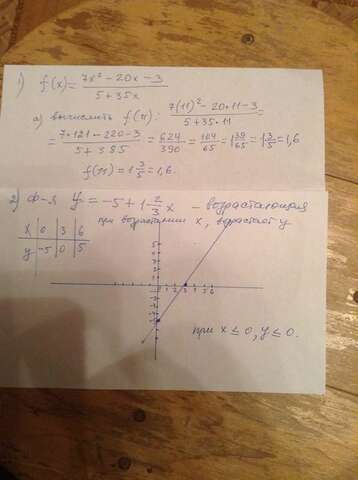 1) f(x) = 7x² - 20x - 3 / 5 + 35x
а) вычислить f(11): 7(11)² - 20·11 - 3 / 5 + 35·11 =
= 7·121 - 220 - 3 / 5 + 385 = 624/390 = 104/65 = 1 39/65 = 1 3/5 = 1,6
f(11) = 1 3/5 = 1,6.
2) Ф-я y = -5 + 1 2/3 x - возрастающая
при возрастании x, возрастает y
x 0 3 6
y -5 0 5
при x ≤ 0, y ≤ 0.